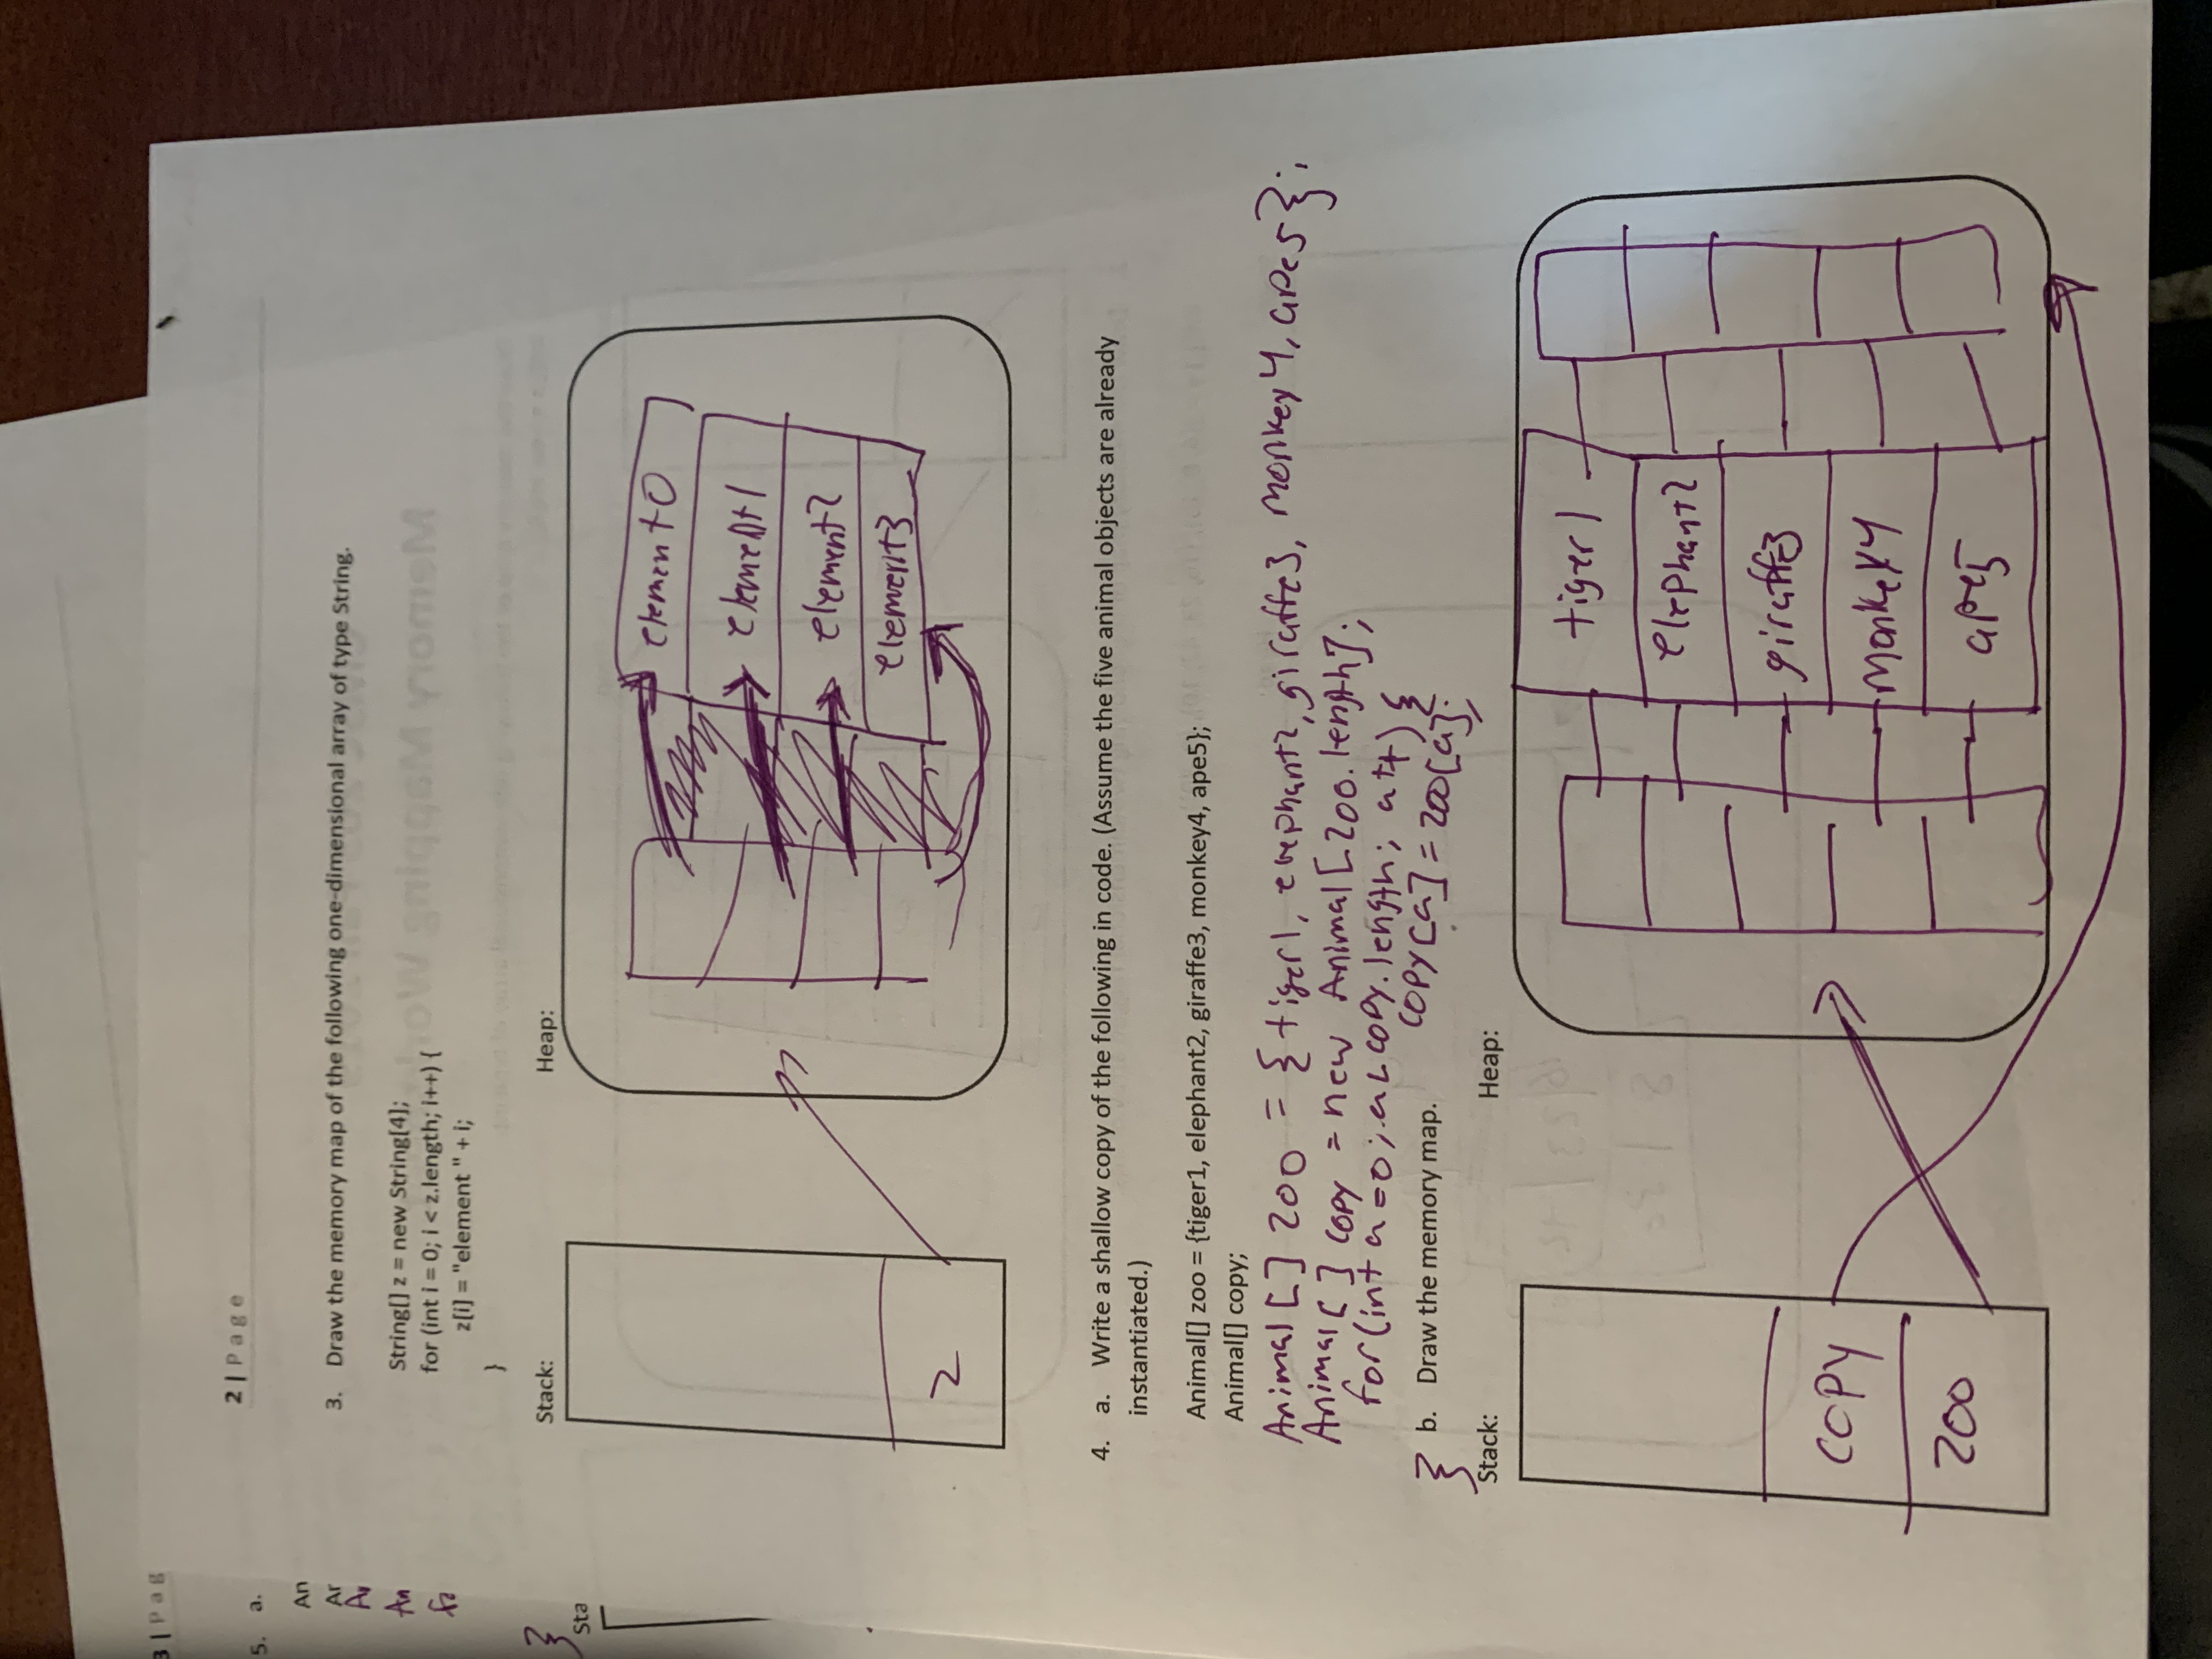 3 | Pag
5. a.
An
Ar
Sta
2 | P a g e
3. Draw the memory map of the following one-dimensional array of type String.
String[] z = new String[4];
for (int i = 0; i < z.length; i++) {
z[i] = "element " + i;
}
Stack: Heap:
z
element0
element1
element2
element3
4. a. Write a shallow copy of the following in code. (Assume the five animal objects are already
instantiated.)
Animal[] zoo = {tiger1, elephant2, giraffe3, monkey4, ape5};
Animal[] copy;
Animal[] zoo = {tiger1, elephant2, giraffe3, monkey4, ape5};
Animal[] copy = new Animal[zoo.length];
for(int a=0; a<copy.length; a++) {
copy[a] = zoo[a];
}
b. Draw the memory map.
Stack: Heap:
copy
zoo
tiger1
elephant2
giraffe3
monkey4
ape5